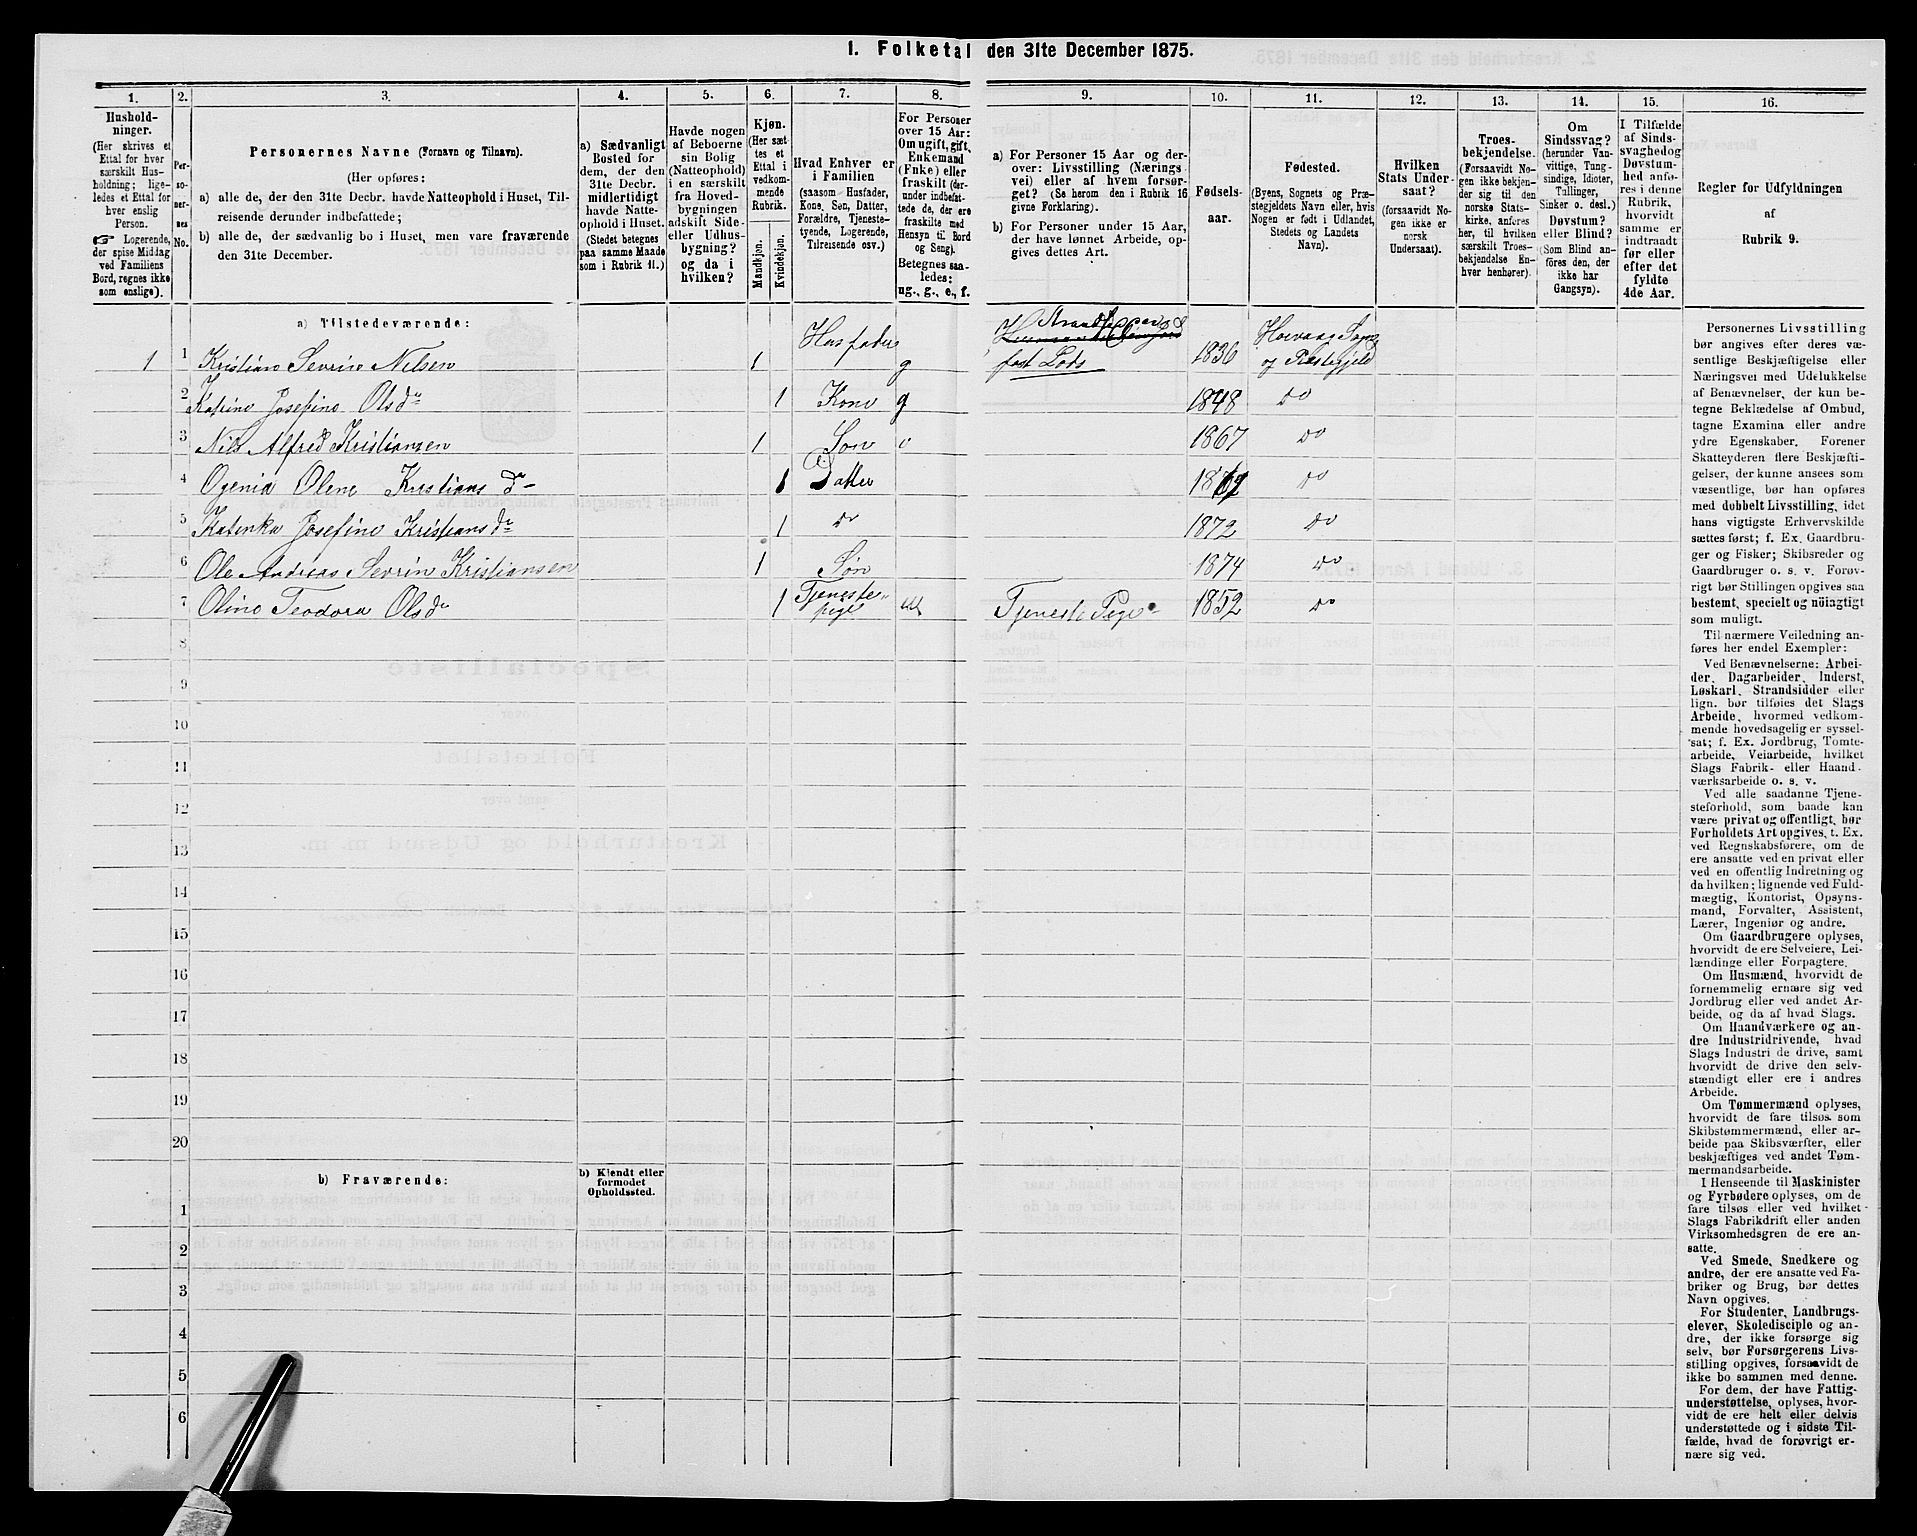 1. Folketal den 31te December 1875.
1. 2. 3. 4. 5. 6. 7. 8. 9. 10. 11. 12. 13. 14. 15. 16.
Hushold-
ninger.
(Her skrives et
Ettal for hver
særskilt Hus-
holdning; lige-
ledes et Ettal for
hver enslig
Person.
☞ Logerende,
der spise Middag
ved Familiens
Bord, regnes ikke
som enslige).
Per-
so-
ner-
nes
No.
Personernes Navne (Fornavn og Tilnavn).
(Her opføres:
a) alle de, der den 31te Decbr. havde Natteophold i Huset, Til-
reisende derunder indbefattede;
b) alle de, der sædvanlig bo i Huset, men vare fraværende
den 31te December.
a) Sædvanligt
Bosted for
dem, der den
31te Decbr.
midlertidigt
havde Natte-
ophold i Huset.
(Stedet betegnes
paa samme Maade
som i Rubrik 11.)
Havde nogen
af Beboerne
sin Bolig
(Natteophold)
i en særskilt
fra Hoved-
bygningen
adskilt Side-
eller Udhus-
bygning?
og da i
hvilken?
Kjøn.
(Her sæt-
tes et
Ettal i
vedkom-
mende
Rubrik.
Mandkjøn.
Kvindekjøn.
Hvad Enhver er
i Familien
(saasom Husfader,
Kone, Søn, Datter,
Forældre, Tjeneste-
tyende, Logerende,
Tilreisende osv.)
For Personer
over 15 Aar:
Om ugift, gift,
Enkemand
(Enke) eller
fraskilt (der-
under indbefat-
tede de, der ere
fraskilte med
Hensyn til Bord
og Seng).
Betegnes saa-
ledes:
ug., g., e., f.
a) For Personer 15 Aar og der-
over: Livsstilling (Nærings
vei) eller af hvem forsør-
get? (Se herom den i Rubrik 16
givne Forklaring).
b) For Personer under 15 Aar,
der have lønnet Arbeide, op-
gives dettes Art.
Fødsels-
aar.
Fødested.
(Byens, Sognets og Præ-
stegjeldets Navn eller, hvis
Nogen er født i Udlandet,
Stedets og Landets
Navn).
Hvilken
Stats Under-
saat?
(forsaavidt No-
gen ikke er
norsk
Undersaat).
Troes-
bekjendelse.
(Forsaavidt No-
gen ikke bekjen-
der sig til den
norske Stats-
kirke, anføres
her, til hvilken
særskilt Troes-
bekjendelse En-
hver henhører).
Om
Sindssvag?
(herunder Van-
vittige, Tung-
sindige, Idioter,
Tullinger,
Sinker o. desl.)
Døvstum?
eller Blind?
(Som Blind an-
føres den, der
ikke har
Gangsyn).
I Tilfælde
af Sinds-
svaghed og
Døvstum-
hed anfø-
res i denne
Rubrik,
hvorvidt
samme er
indtraadt
før eller
efter det
fyldte
4de Aar.
Regler for Udfyldningen
af
Rubrik 9.
a) Tilstedeværende:
1 1 Kristian Sevrin Nilsen 1 Husfader g fast Lods 1836 Høivaag Sogn
og Præstegjeld
2 Katrine Josefine Olsdr 1 Kone g 1848 do
3 Nils Alfred Kristiansen 1 Søn 1867 do
4 Ogenia Olene Kristiansdr 1 Datter do
5 Katinka Josefine Kristiansdr 1 do 1872 do
6 Ole Andreas Sevrin Kristiansen 1 Søn 1874 do
7 Oline Teodora Olsdr 1 Tjeneste-
pige Tjeneste Pige 1852 do
8
9
10
11
12
13
14
15
16
17
18
19
20
b) Fraværende:
b) Kjendt eller
formodet
Opholdssted.
1
2
3
4
5
6
Personernes Livsstilling
bør angives efter deres væ-
sentlige Beskjæftigelse eller
Næringsvei med Udelukkelse
af Benævnelser, der kun be-
tegne Beklædelse af Ombud,
tagne Examina eller andre
ydre Egenskaber. Forener
Skatteyderen flere Beskjæfti-
gelser, der kunne ansees som
væsentlige, bør han opføres
med dobbelt Livsstilling, idet
hans vigtigste Erhvervskilde
sættes først; f. Ex. Gaardbru-
ger og Fisker; Skibsreder og
Gaardbruger o. s. v. Forøv-
rigt bør Stillingen opgives saa
bestemt, specielt og nøiagtigt
som muligt.
Til nærmere Veiledning an-
føres her endel Exempler:
Ved Benævnelserne: Arbei-
der, Dagarbeider, Inderst,
Løskarl, Strandsidder eller
lign. bør tilføies det Slags
Arbeide, hvormed vedkom-
mende hovedsagelig er syssel-
sat; f. Ex. Jordbrug, Tomte-
arbeide, Veiarbeide, hvilket
Slags Fabrik- eller Haand-
værksarbeide o. s. v.
Ved alle saadanne Tjene-
steforhold, som baade kan
være privat og offentligt, bør
Forholdets Art opgives, t. Ex.
ved Regnskabsførere, om de
ere ansatte ved en privat eller
ved en offentlig Indretning og
da hvilken; lignende ved Fuld-
mægtig, Kontorist, Opsyns-
mand, Forvalter, Assistent,
Lærer, Ingeniør og andre.
Om Gaardbrugere oplyses,
hvorvidt de ere Selveiere, Lei-
lændinge eller Forpagtere.
Om Husmænd, hvorvidt de
fornemmelig ernære sig ved
Jordbrug eller ved andet Ar-
beide, og da af hvad Slags.
Om Haandværkere og an-
dre Industridrivende, hvad
Slags Industri de drive, samt
hvorvidt de drive den selv-
stændigt eller ere i andres
Arbeide.
Om Tømmermænd oplyses,
hvorvidt de fare tilsøs som
Skibstømmermænd, eller ar-
beide paa Skibsværfter, eller
beskjæftiges ved andet Tøm-
mermandsarbeide.
I Henseende til Maskinister
og Fyrbødere oplyses, om de
fare tilsøs eller ved hvilket
Slags Fabrikdrift eller anden
Virksomhedsgren de ere an-
satte.
Ved Smede, Snedkere og
andre, der ere ansatte ved Fa-
briker og Brug, bør dettes
Navn opgives.
For Studenter, Landbrugs-
elever, Skoledisciple og an-
dre, der ikke forsørge sig
selv, bør Forsørgerens Livs-
stilling opgives, forsaavidt de
ikke bo sammen med denne.
For dem, der have Fattig-
understøttelse, oplyses, hvor-
vidt de ere helt eller delvis
understøttede og i sidste Til-
fælde, hvad de forøvrigt er-
nære sig ved.